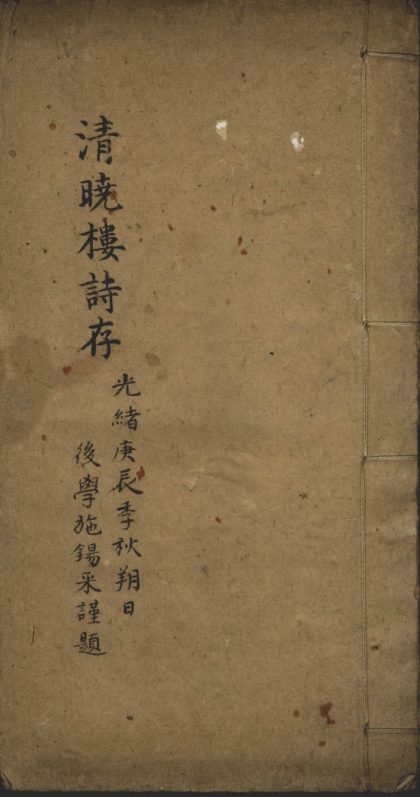 清曉樓詩存
光緒庚辰季秋朔日
後學施錫采謹題